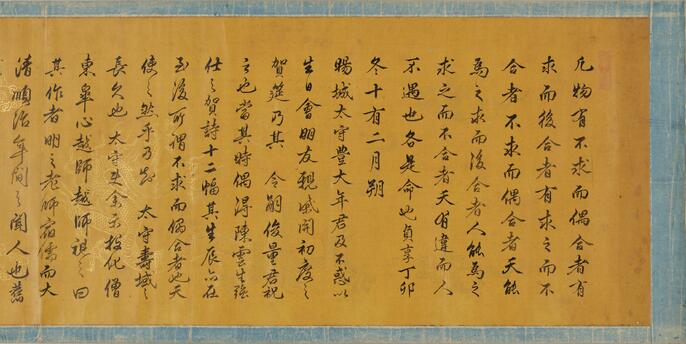 凡物有不求而偶合者有
求而後合者有求之而不
合者不求而偶合者天能
為之求而後合者人能為之
求之而不合者天有違而人
不遇也各是命也貞享丁卯
冬十有二月朔
賜城太守豊大年君及不惑以
生日會朋友親戚開初度之
賀筵乃其令嗣俊量君祝
之也當其時偶得陳雲生強
仕之賀詩十二幅其生辰亦在
玉後所謂不求而偶合者也天
使之然乎乃知太守壽域之
長久也太守更金示投化僧
東皋心越師越師視之曰
其作者明之老師宿儒而大
清順治年間之聞人也舊